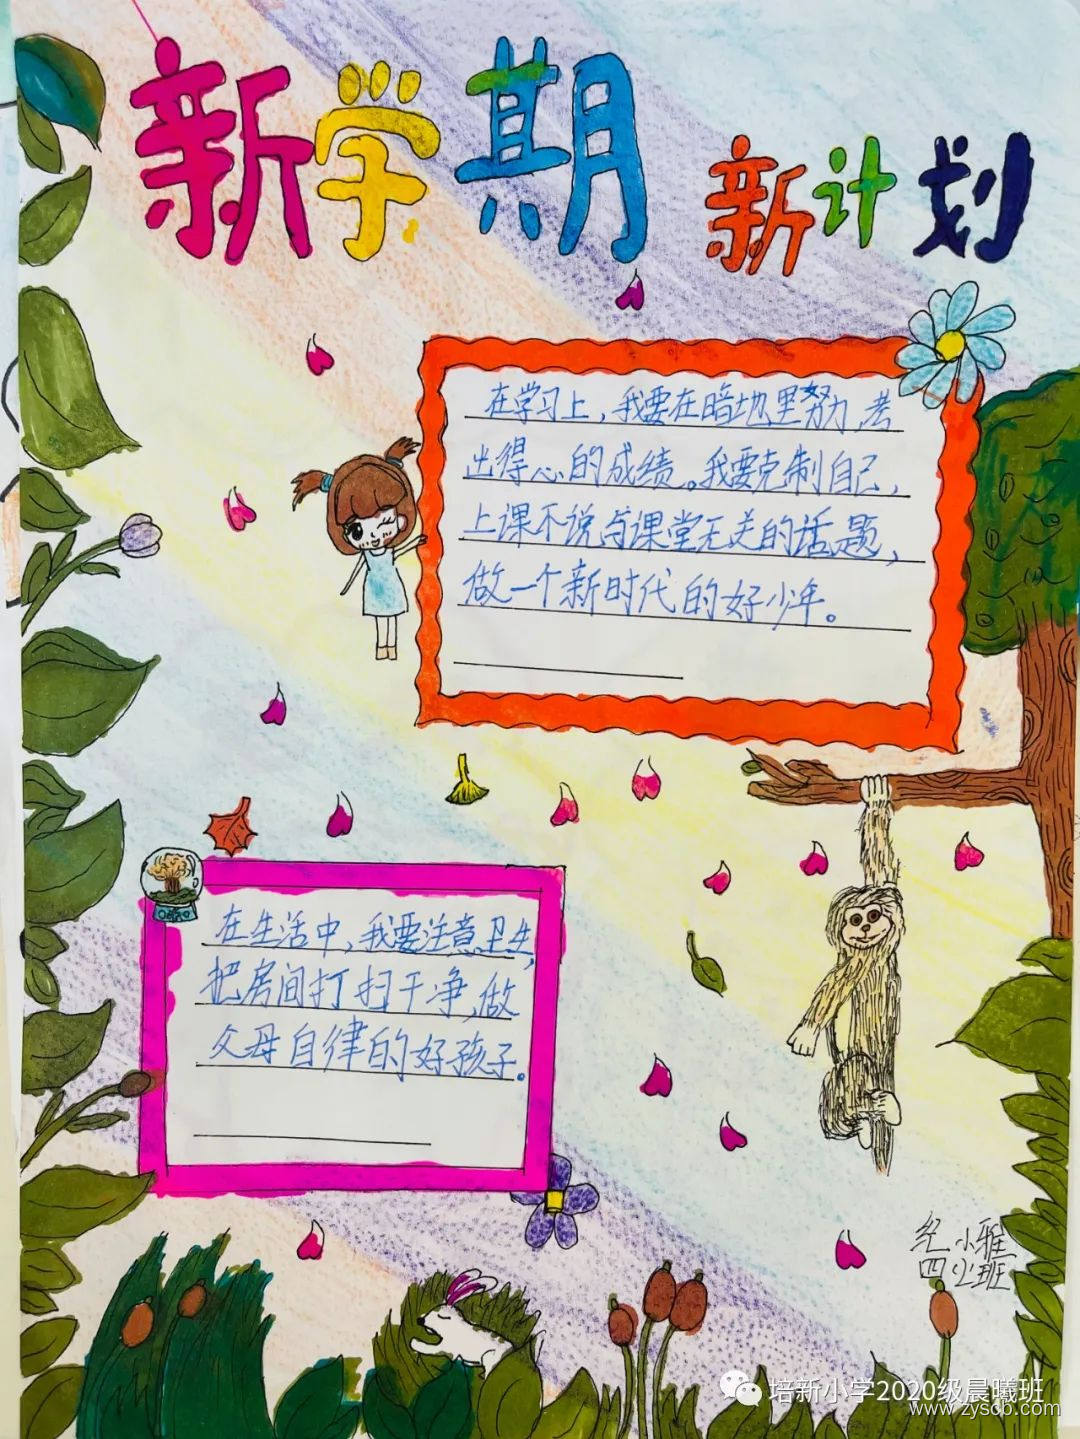 新学期 新计划
在学习上，我要在暗地里努力，考
出得心的成绩。我要克制自己，
上课不说与课堂无关的话题，
做一个新时代的好少年。
在生活中，我要注意卫生，
把房间打扫干净，做
父母自律的好孩子。
小雅
班
培新小学2020级晨曦班
www.zyscb.com